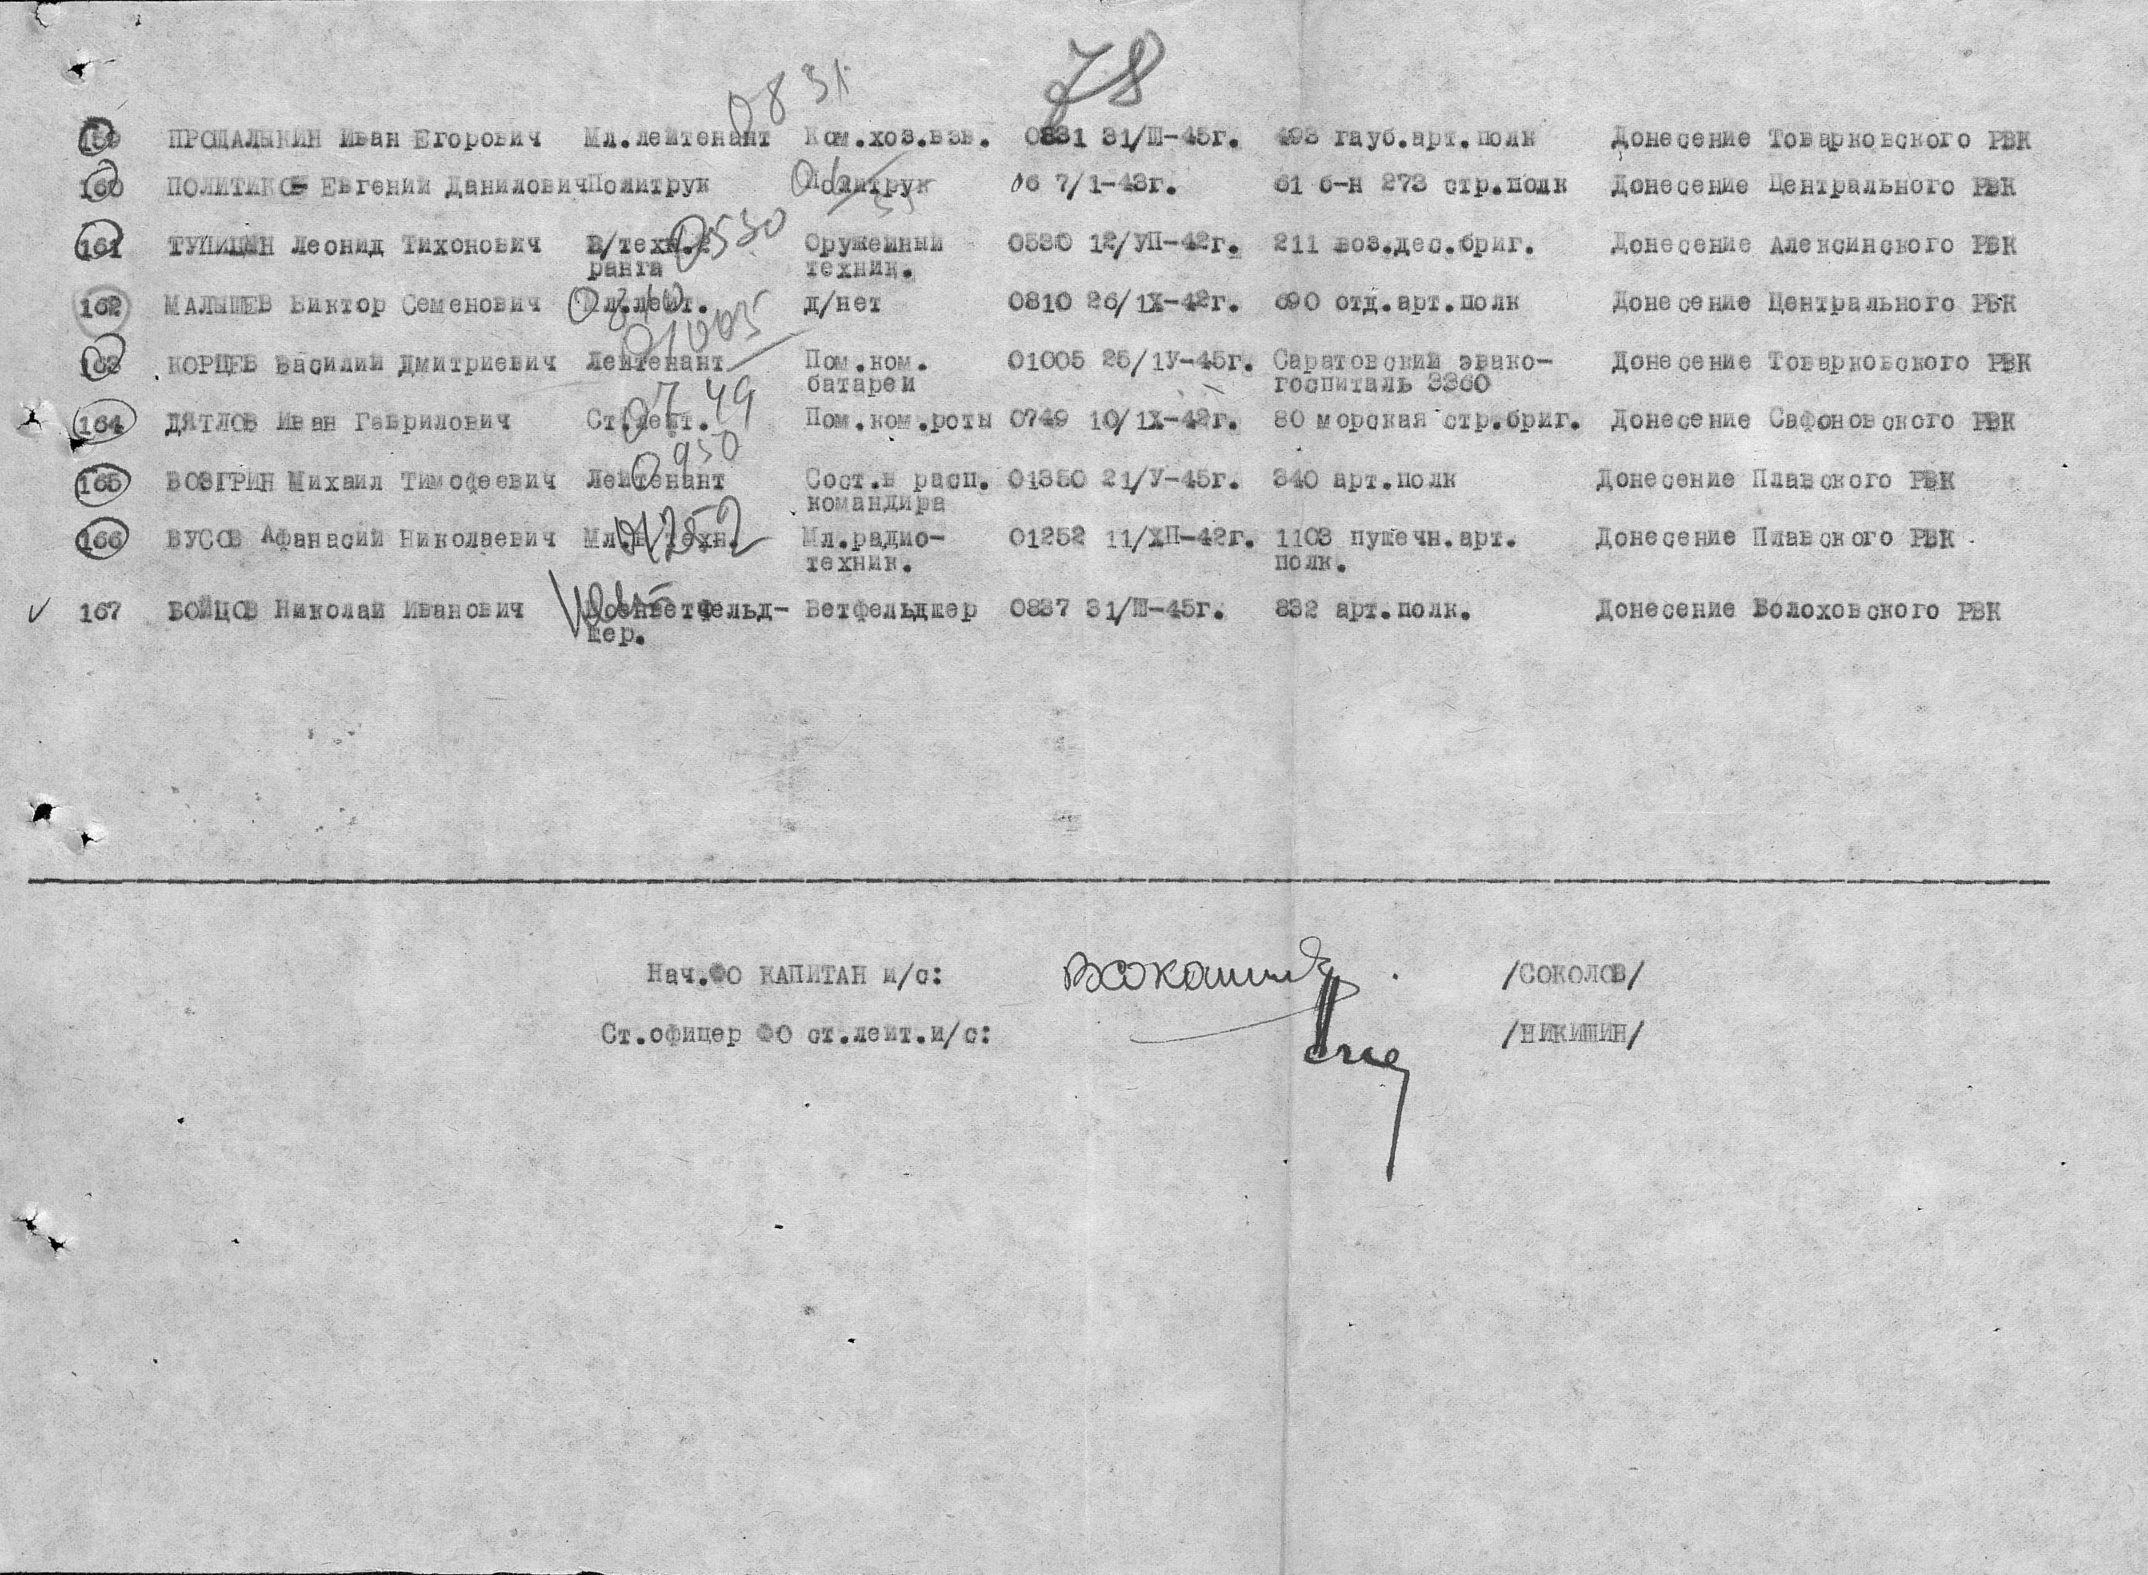 78
0831
159 ПРОДАЛЫКИН Иван Егорович Мл.лейтенант Ком.хоз.взв. 0831 31/Ш-45г. 493 гауб.арт.полк Донесение Товарковского РВК
160 ПОЛИТИКОВ Евгений Данилович Политрук Политрук 06 7/1-43г. 61 б-н 273 стр.полк Донесение Центрального РВК
0530
161 ТУПИЦЫН Леонид Тихонович В/техн.2 Оружейный 0530 12/УП-42г. 211 воз.дес.бриг. Донесение Алексинского РВК
ранга техник.
162 МАЛЫШЕВ Виктор Семенович Мл.лейт. д/нет 0810 26/1Х-42г. 690 отд.арт.полк Донесение Центрального РВК
0810
01005
163 КОРЦЕВ Василий Дмитриевич Лейтенант Пом.ком. 01005 25/1У-45г. Саратовский эвако- Донесение Товарковского РВК
батареи госпиталь 3360
0749
164 ДЯТЛОВ Иван Гаврилович Ст.лейт. Пом.ком.роты 0749 10/1Х-42г. 80 морская стр.бриг. Донесение Сафоновского РВК
0950
165 ВОЗГРИН Михаил Тимофеевич Лейтенант Сост.в расп. 01350 21/У-45г. 340 арт.полк Донесение Плавского РВК
командира
166 ВУСОВ Афанасий Николаевич Мл.в/техн. Мл.радио- 01252 11/ХП-42г. 1103 пушечн.арт. Донесение Плавского РВК
01252
техник. полк.
167 БОЙЦОВ Николай Иванович Военветфельд- Ветфельдшер 0837 31/Ш-45г. 832 арт.полк. Донесение Волоховского РВК
шер.
Нач.ФО КАПИТАН и/с: /СОКОЛОВ/
Ст.офицер ФО ст.лейт.и/с: /НИКИШИН/